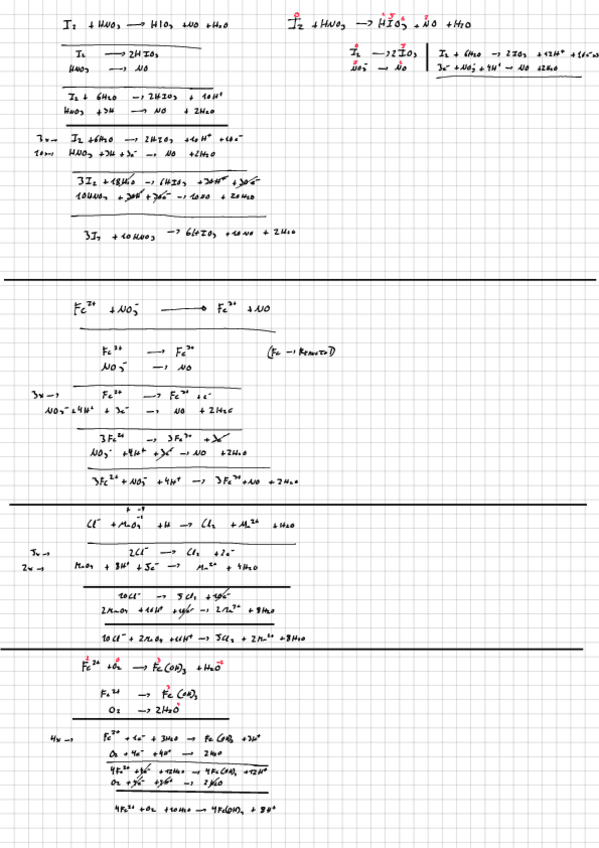 I₂ + HNO₃ → HIO₃ + NO + H₂O
I₂ → 2HIO₃
HNO₃ → NO
I₂ + 6H₂O → 2HIO₃ + 10H⁺
HNO₃ + 3H → NO + 2H₂O
3x → I₂ + 6H₂O → 2HIO₃ + 10H⁺ + 10e⁻
10x → HNO₃ + 3H + 3e⁻ → NO + 2H₂O
3I₂ + 18H₂O → 6HIO₃ + 30H⁺ + 30e⁻
10HNO₃ + 30H⁺ + 30e⁻ → 10NO + 20H₂O
3I₂ + 10HNO₃ → 6HIO₃ + 10NO + 2H₂O
I₂ + HNO₃ → HIO₃ + NO + H₂O
I₂ → 2IO₃
NO₃⁻ → NO
I₂ + 6H₂O → 2IO₃ + 12H⁺ + 10e⁻
3e⁻ + NO₃⁻ + 4H⁺ → NO + 2H₂O
Fe²⁺ + NO₃⁻ → Fe³⁺ + NO
Fe²⁺ → Fe³⁺
NO₃⁻ → NO
3x → Fe²⁺ → Fe³⁺ + e⁻
NO₃⁻ + 4H⁺ + 3e⁻ → NO + 2H₂O
3Fe²⁺ → 3Fe³⁺ + 3e⁻
NO₃⁻ + 4H⁺ + 3e⁻ → NO + 2H₂O
3Fe²⁺ + NO₃⁻ + 4H⁺ → 3Fe³⁺ + NO + 2H₂O
Cl⁻ + MnO₄⁻ + H → Cl₂ + Mn²⁺ + H₂O
5x → 2Cl⁻ → Cl₂ + 2e⁻
2x → MnO₄ + 8H⁺ + 5e⁻ → Mn²⁺ + 4H₂O
10Cl⁻ → 5Cl₂ + 10e⁻
2MnO₄ + 16H⁺ + 10e⁻ → 2Mn²⁺ + 8H₂O
10Cl⁻ + 2MnO₄ + 16H⁺ → 5Cl₂ + 2Mn²⁺ + 8H₂O
Fe²⁺ + O₂ → Fe(OH)₃ + H₂O
Fe²⁺ → Fe(OH)₃
O₂ → 2H₂O
4x → Fe²⁺ + 1e⁻ + 3H₂O → Fe(OH)₃ + 3H⁺
O₂ + 4e⁻ + 4H⁺ → 2H₂O
4Fe²⁺ + 4e⁻ + 12H₂O → 4Fe(OH)₃ + 12H⁺
O₂ + 4e⁻ + 4H⁺ → 2H₂O
4Fe²⁺ + O₂ + 10H₂O → 4Fe(OH)₃ + 8H⁺